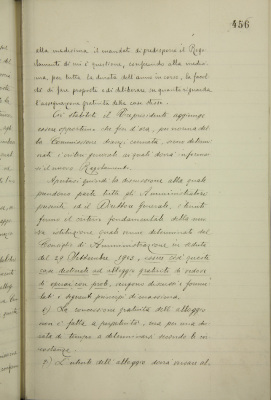 456
alla medesima il mandato di predisporre il Rego
lamento di cui è questione, conferendo alla medesi
ma, per tutta la durata dell'anno in corso, la facol
tà di fare proposte e di deliberare in quanto riguarda
l'assegnazione gratuita delle case stesse.
Ciò stabilito il Vicepresidente aggiunge
essere opportuno che fin d'ora, per norma del
la Commissione stessa, siano determi
nati i criteri generali ai quali dovrà informar
si il nuovo Regolamento.
Apertasi quindi la discussione alla quale
prendono parte tutti gli Amministratori
presenti ed il Direttore Generale, e tenuto
fermo il criterio fondamentale della
istituzione quale venne determinato dal
Consiglio di Amministrazione, in seduta
del 29 Settembre 1903, essere cioè queste
case destinate ad alloggio gratuito di vedove
di operai con prole, vengono discussi e formu
lati i seguenti principi di massima.
1) La concessione gratuita dell'alloggio
non è fatta a perpetuità, ma per una du
rata di tempo a determinarsi secondo le cir
costanze.
2) L'utente dell'alloggio dovrà